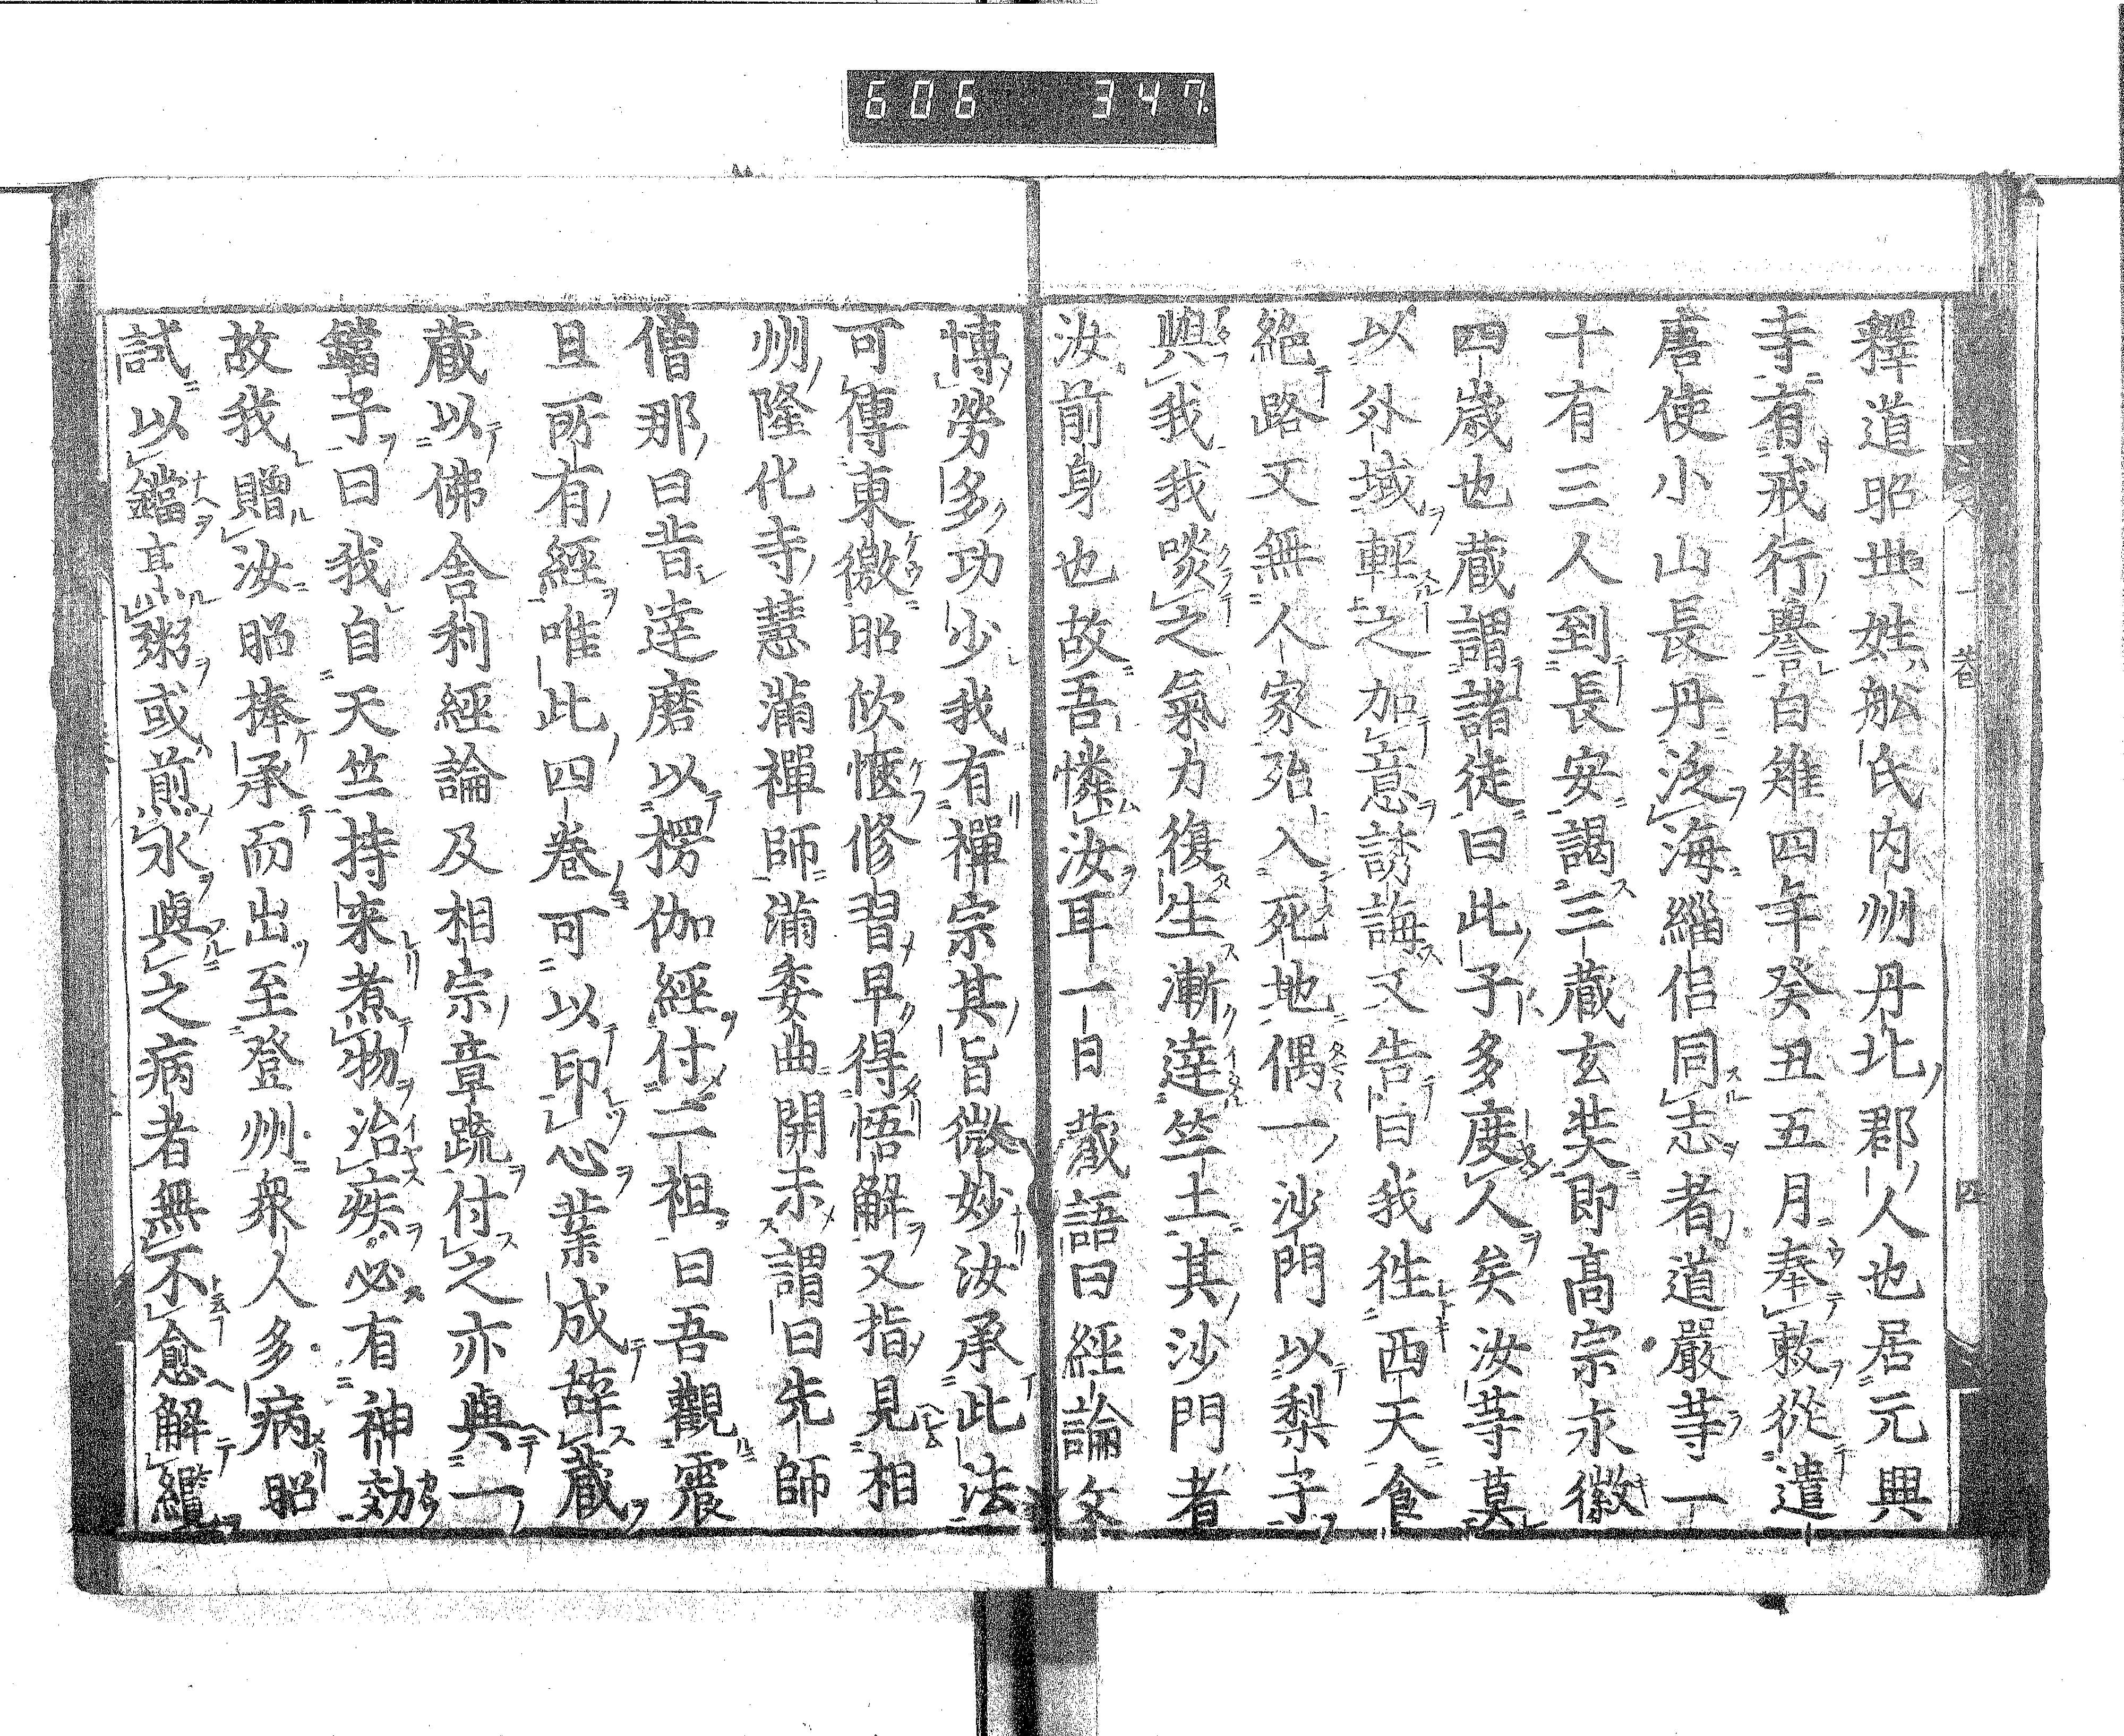 606 347
釋道昭世姓舩氏内州丹北郡人也居元興
寺有戒行譽白雉四年癸丑五月奉敕從遣
唐使小山長丹泛海緇侶同志者道嚴等一
十有三人到長安謁三蔵玄奘即高宗永徽
四歳也蔵謂諸徒曰此子多度人矣汝等莫
以外域輕之加意誘誨又告曰我徃西天食
絶路又無人家殆入死地偶一沙門以梨子
與我我啖之氣力復生漸達竺土其沙門者
汝前身也故吾憐汝耳一日蔵語曰經論文
愽勞多功少我有禪宗其旨微妙汝承此法
可傳東徼昭欣愜修習早得悟解又指見相
州隆化寺慧滿禪師滿委曲開示謂曰先師
僧那曰昔達磨以楞伽經付二祖曰吾觀震
旦所有經唯此四卷可以印心業成辞蔵
蔵以佛舎利經論及相宗章疏付之亦與一
鐺子曰我自天竺持来煮物治疾必有神効
故我贈汝昭捧承而出至登州衆人多病昭
試以鐺煮粥或煎水與之病者無不愈解纜